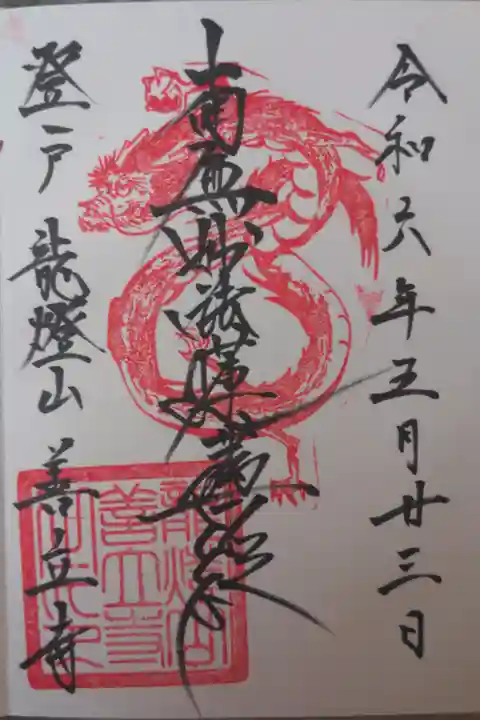 令和六年五月廿三日
南無妙法蓮華経
登戸 龍燈山 善立寺
龍燈山
善立寺